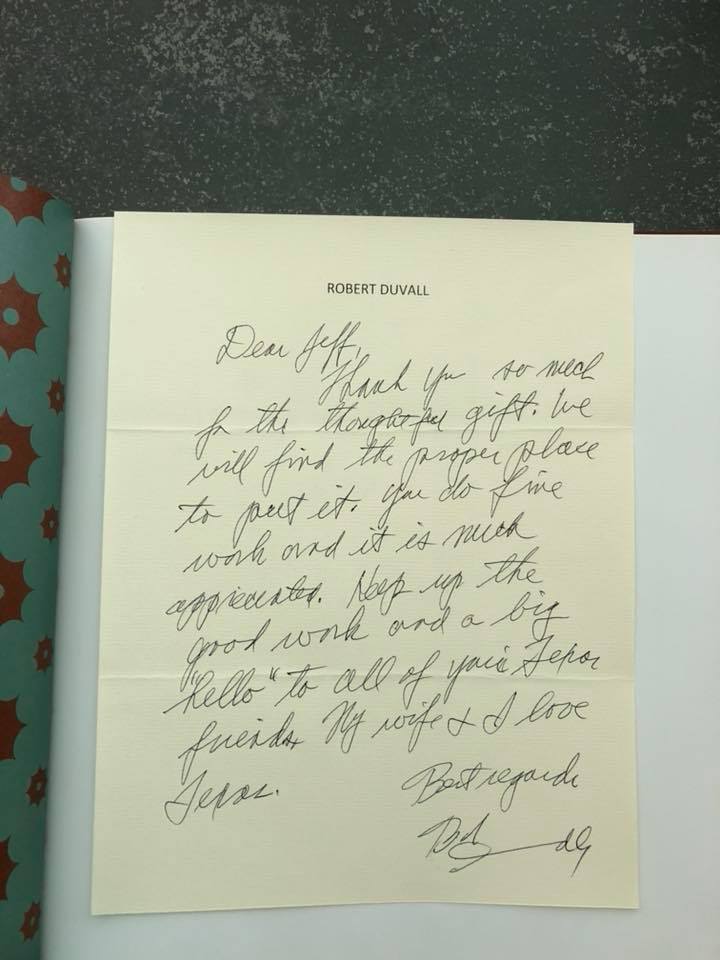 ROBERT DUVALL
Dear Jeff,
Thank you so much
for the thoughtful gift. We
will find the proper place
to put it. You do fine
work and it is much
appreciated. Keep up the
good work and a big
"hello" to all of your Texas
friends. My wife & I love
Texas.
Best regards